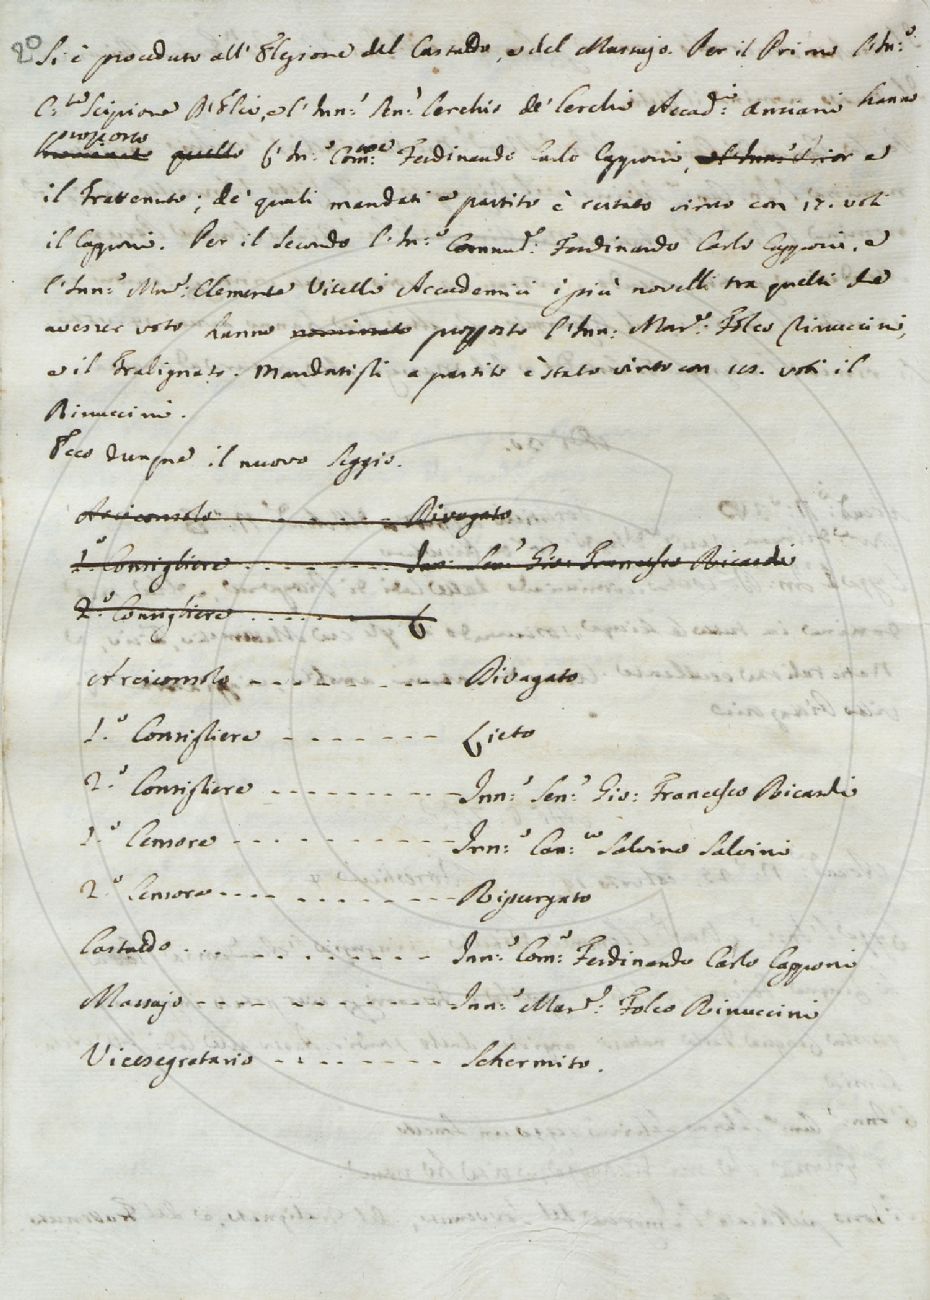 20
Si è proceduto all'Elezione del Castaldo, e del Massajo. Per il Primo l'Inn:º
C:te Scipione D'Elci, e l'Inn:º Sen:e Cerchio de' Cerchi Accad:i Anziani hanno
proposto
nominato quello l'In:º Com:re Ferdinando Carlo Capponi, e l'Inn:º Prior e
il Trattenuto; de' quali mandati a partito è restato vinto con 17. voti
il Capponi. Per il Secondo l'In:º Commend:e Ferdinando Carlo Capponi, e
l'Inn:º Mar:e Clemente Vitelli Accademici i più novelli tra quelli che
avesser voto hanno nominato proposto l'Inn: Mar:e Folco Rinuccini,
e il Tralignato. Mandatisi a partito è stato vinto con voti il
Rinuccini.
Ecco dunque il nuovo Seggio.
Arciconsolo - - - - - - - - Divagato
1.º Consigliere - - - - - - - - Inn:º Sen:e Gio: Francesco Ricardi
2.º Consigliere - - - - - - - - L
Arciconsolo - - - - - - - - Divagato
1.º Consigliere - - - - - - - - Lieto
2.º Consigliere - - - - - - - - Inn:º Sen:e Gio: Francesco Ricardi
1.º Censore - - - - - - - - Inn:º Can:co Salvino Salvini
2.º Censore - - - - - - - - Ripurgato
Castaldo - - - - - - - - Inn:º Com:e Ferdinando Carlo Capponi
Massajo - - - - - - - - Inn:º Mar:e Folco Rinuccini
Vicesegretario - - - - - - - - Schermito.